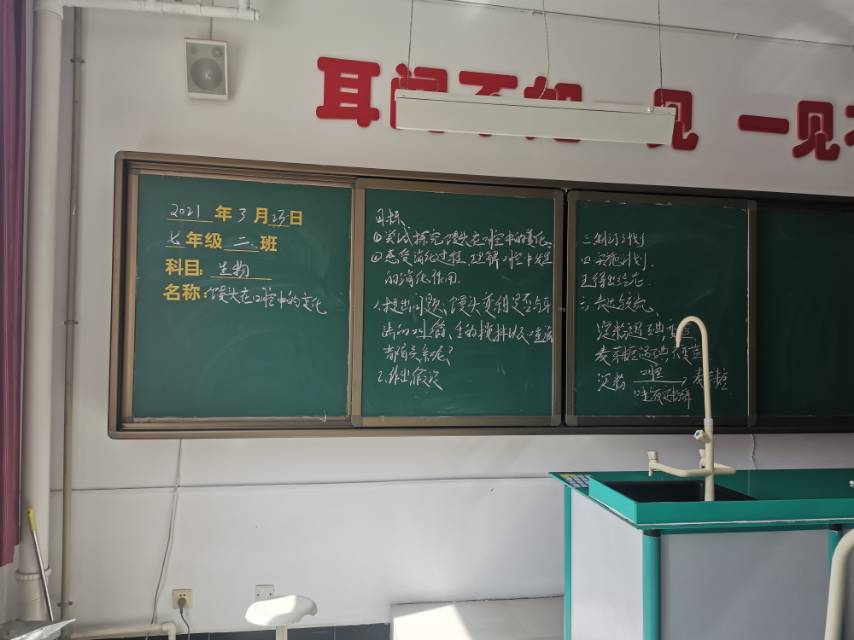 耳闻不如一见 一见不
2021年3月23日
七年级二班
科目:生物
名称:馒头在口腔中的变化
目标
①尝试探究馒头在口腔中的变化.
②感受消化过程,理解口腔中发生
的消化作用.
1.提出问题、馒头变甜是否与牙
齿的咀嚼、舌的搅拌以及唾液
都有关系呢?
2.作出假设
三.制订计划
四.实施计划.
五.得出结论.
六.表达交流
淀粉遇碘变蓝
麦芽糖遇碘不变蓝
淀粉 麦芽糖